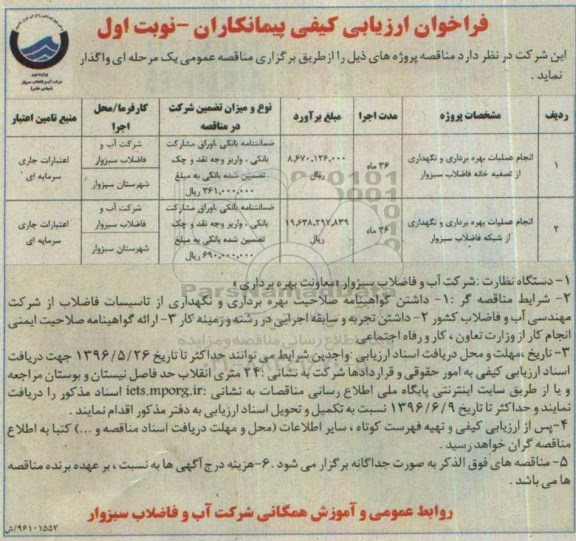 فراخوان ارزیابی کیفی پیمانکاران -نوبت اول
این شرکت در نظر دارد مناقصه پروژه های ذیل را ازطریق برگزاری مناقصه عمومی یک مرحله ای واگذار
نماید .
وزارت نیرو
شرکت آب و فاضلاب سبزوار
(سهامی خاص)
ردیف
مشخصات پروژه
مدت اجرا
مبلغ برآورد
نوع و میزان تضمین شرکت
در مناقصه
کارفرما/محل
اجرا
منبع تامین اعتبار
۱
انجام عملیات بهره برداری و نگهداری
از تصفیه خانه فاضلاب سبزوار
۳۶ ماه
۸,۶۷۰,۱۲۶,۰۰۰
ریال
ضمانتنامه بانکی ،اوراق مشارکت
بانکی ، واریز وجه نقد و چک
تضمین شده بانکی به مبلغ
۳۶۱,۰۰۰,۰۰۰ ریال
شرکت آب و
فاضلاب سبزوار
شهرستان سبزوار
اعتبارات جاری
سرمایه ای
۲
انجام عملیات بهره برداری و نگهداری
از شبکه فاضلاب سبزوار
۳۶ ماه
۱۹,۶۳۸,۲۹۷,۸۳۹
ریال
ضمانتنامه بانکی ،اوراق مشارکت
بانکی ، واریز وجه نقد و چک
تضمین شده بانکی به مبلغ
۶۹۰,۰۰۰,۰۰۰ ریال
شرکت آب و
فاضلاب سبزوار
شهرستان سبزوار
اعتبارات جاری
سرمایه ای
۱- دستگاه نظارت :شرکت آب و فاضلاب سبزوار (معاونت بهره برداری)
۲- شرایط مناقصه گر :۱- داشتن گواهینامه صلاحیت بهره برداری و نگهداری از تاسیسات فاضلاب از شرکت
مهندسی آب و فاضلاب کشور ۲- داشتن تجربه و سابقه اجرایی در رشته و زمینه کار ۳- ارائه گواهینامه صلاحیت ایمنی
انجام کار از وزارت تعاون ، کار و رفاه اجتماعی
۳- تاریخ ،مهلت و محل دریافت اسناد ارزیابی :واجدین شرایط می توانند حداکثر تا تاریخ ۱۳۹۶/۵/۲۶ جهت دریافت
اسناد ارزیابی کیفی به امور حقوقی و قراردادها شرکت به نشانی :۲۴ متری انقلاب حد فاصل نیستان و بوستان مراجعه
و یا از طریق سایت اینترنتی پایگاه ملی اطلاع رسانی مناقصات به نشانی :iets.mporg.ir اسناد مذکور را دریافت
نمایند و حداکثر تا تاریخ ۱۳۹۶/۶/۹ نسبت به تکمیل و تحویل اسناد ارزیابی به دفتر مذکور اقدام نمایند .
۴-پس از ارزیابی کیفی و تهیه فهرست کوتاه ، سایر اطلاعات (محل و مهلت دریافت اسناد مناقصه و ...) کتبا به اطلاع
مناقصه گران خواهد رسید .
۵- مناقصه های فوق الذکر به صورت جداگانه برگزار می شود .۶-هزینه درج آگهی ها به نسبت ، بر عهده برنده مناقصه
ها می باشد .
روابط عمومی و آموزش همگانی شرکت آب و فاضلاب سبزوار
۹۶۱۰۱۵۵۲/ش